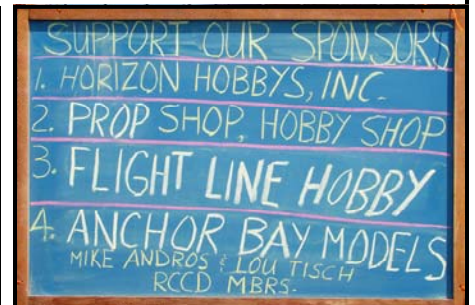 SUPPORT OUR SPONSORS
1. HORIZON HOBBYS, INC.
2. PROP SHOP, HOBBY SHOP
3. FLIGHT LINE HOBBY
4. ANCHOR BAY MODELS
MIKE ANDROS & LOU TISCH
RCCD MBRS.